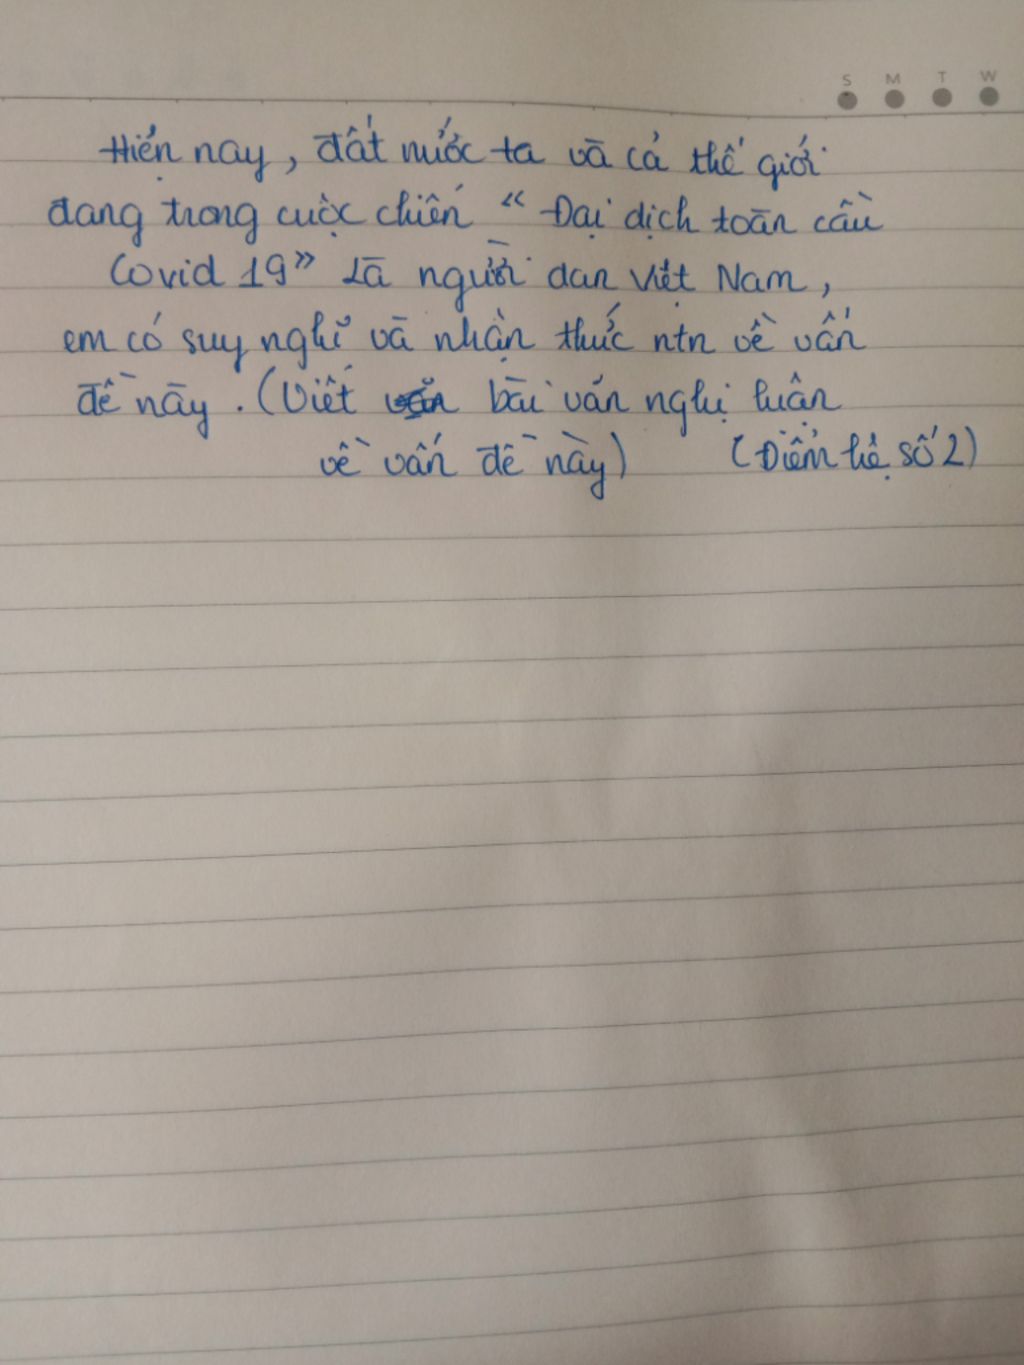 S M T W
Hiện nay, đất nước ta và cả thế giới
đang trong cuộc chiến “Đại dịch toàn cầu
Covid 19” Là người dan Việt Nam,
em có suy nghĩ và nhận thức ntn về vấn
đề này. (Viết bài văn nghị luận
về vấn đề này) (Điểm hệ số 2)